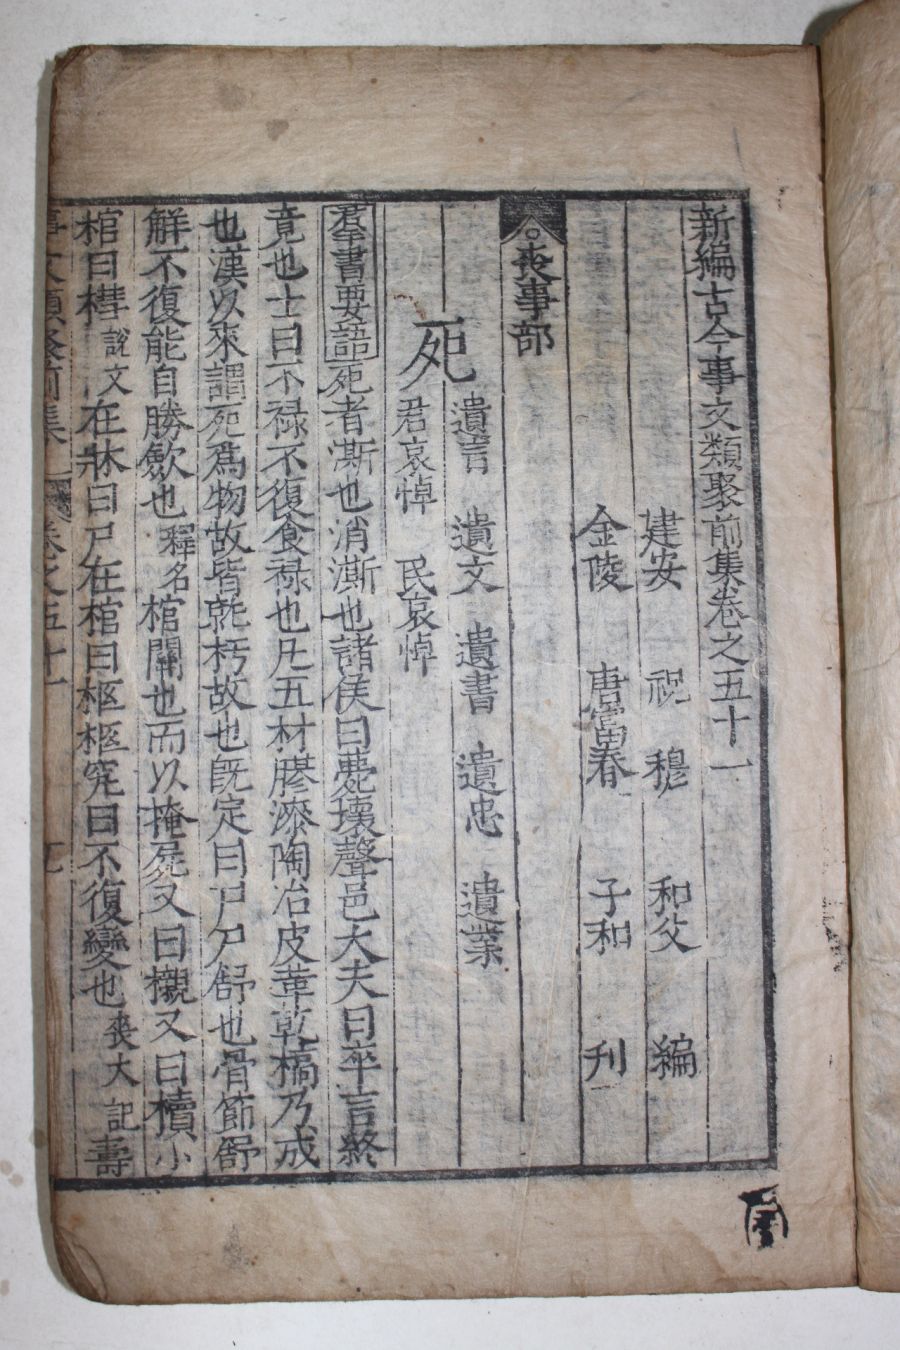 新編古今事文類聚前集卷之五十一
建安 祝 穆 和父 編
金陵 唐富春 子和 刊
○喪事部
遺言 遺文 遺書 遺忠 遺業
死 君哀悼 民哀悼
羣書要語 死者澌也消澌也諸侯曰薨壞聲邑大夫曰卒言終
竟也士曰不禄不復食禄也凡五材膠漆陶冶皮革乾槁乃成
也漢以來謂死爲物故皆就朽故也旣定曰尸尸舒也骨節舒
解不復能自勝斂也釋名棺關也而以掩屍又曰櫬又曰櫝小
棺曰槥說文在牀曰尸在棺曰柩柩究曰不復變也喪大記壽
事文類聚前集 卷之五十一